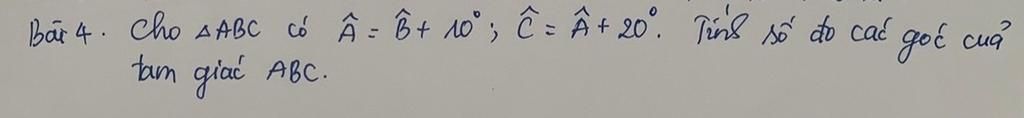 Bài 4. Cho △ABC có Â = B̂ + 10°; Ĉ = Â + 20°. Tính số đo các góc của
tam giác ABC.